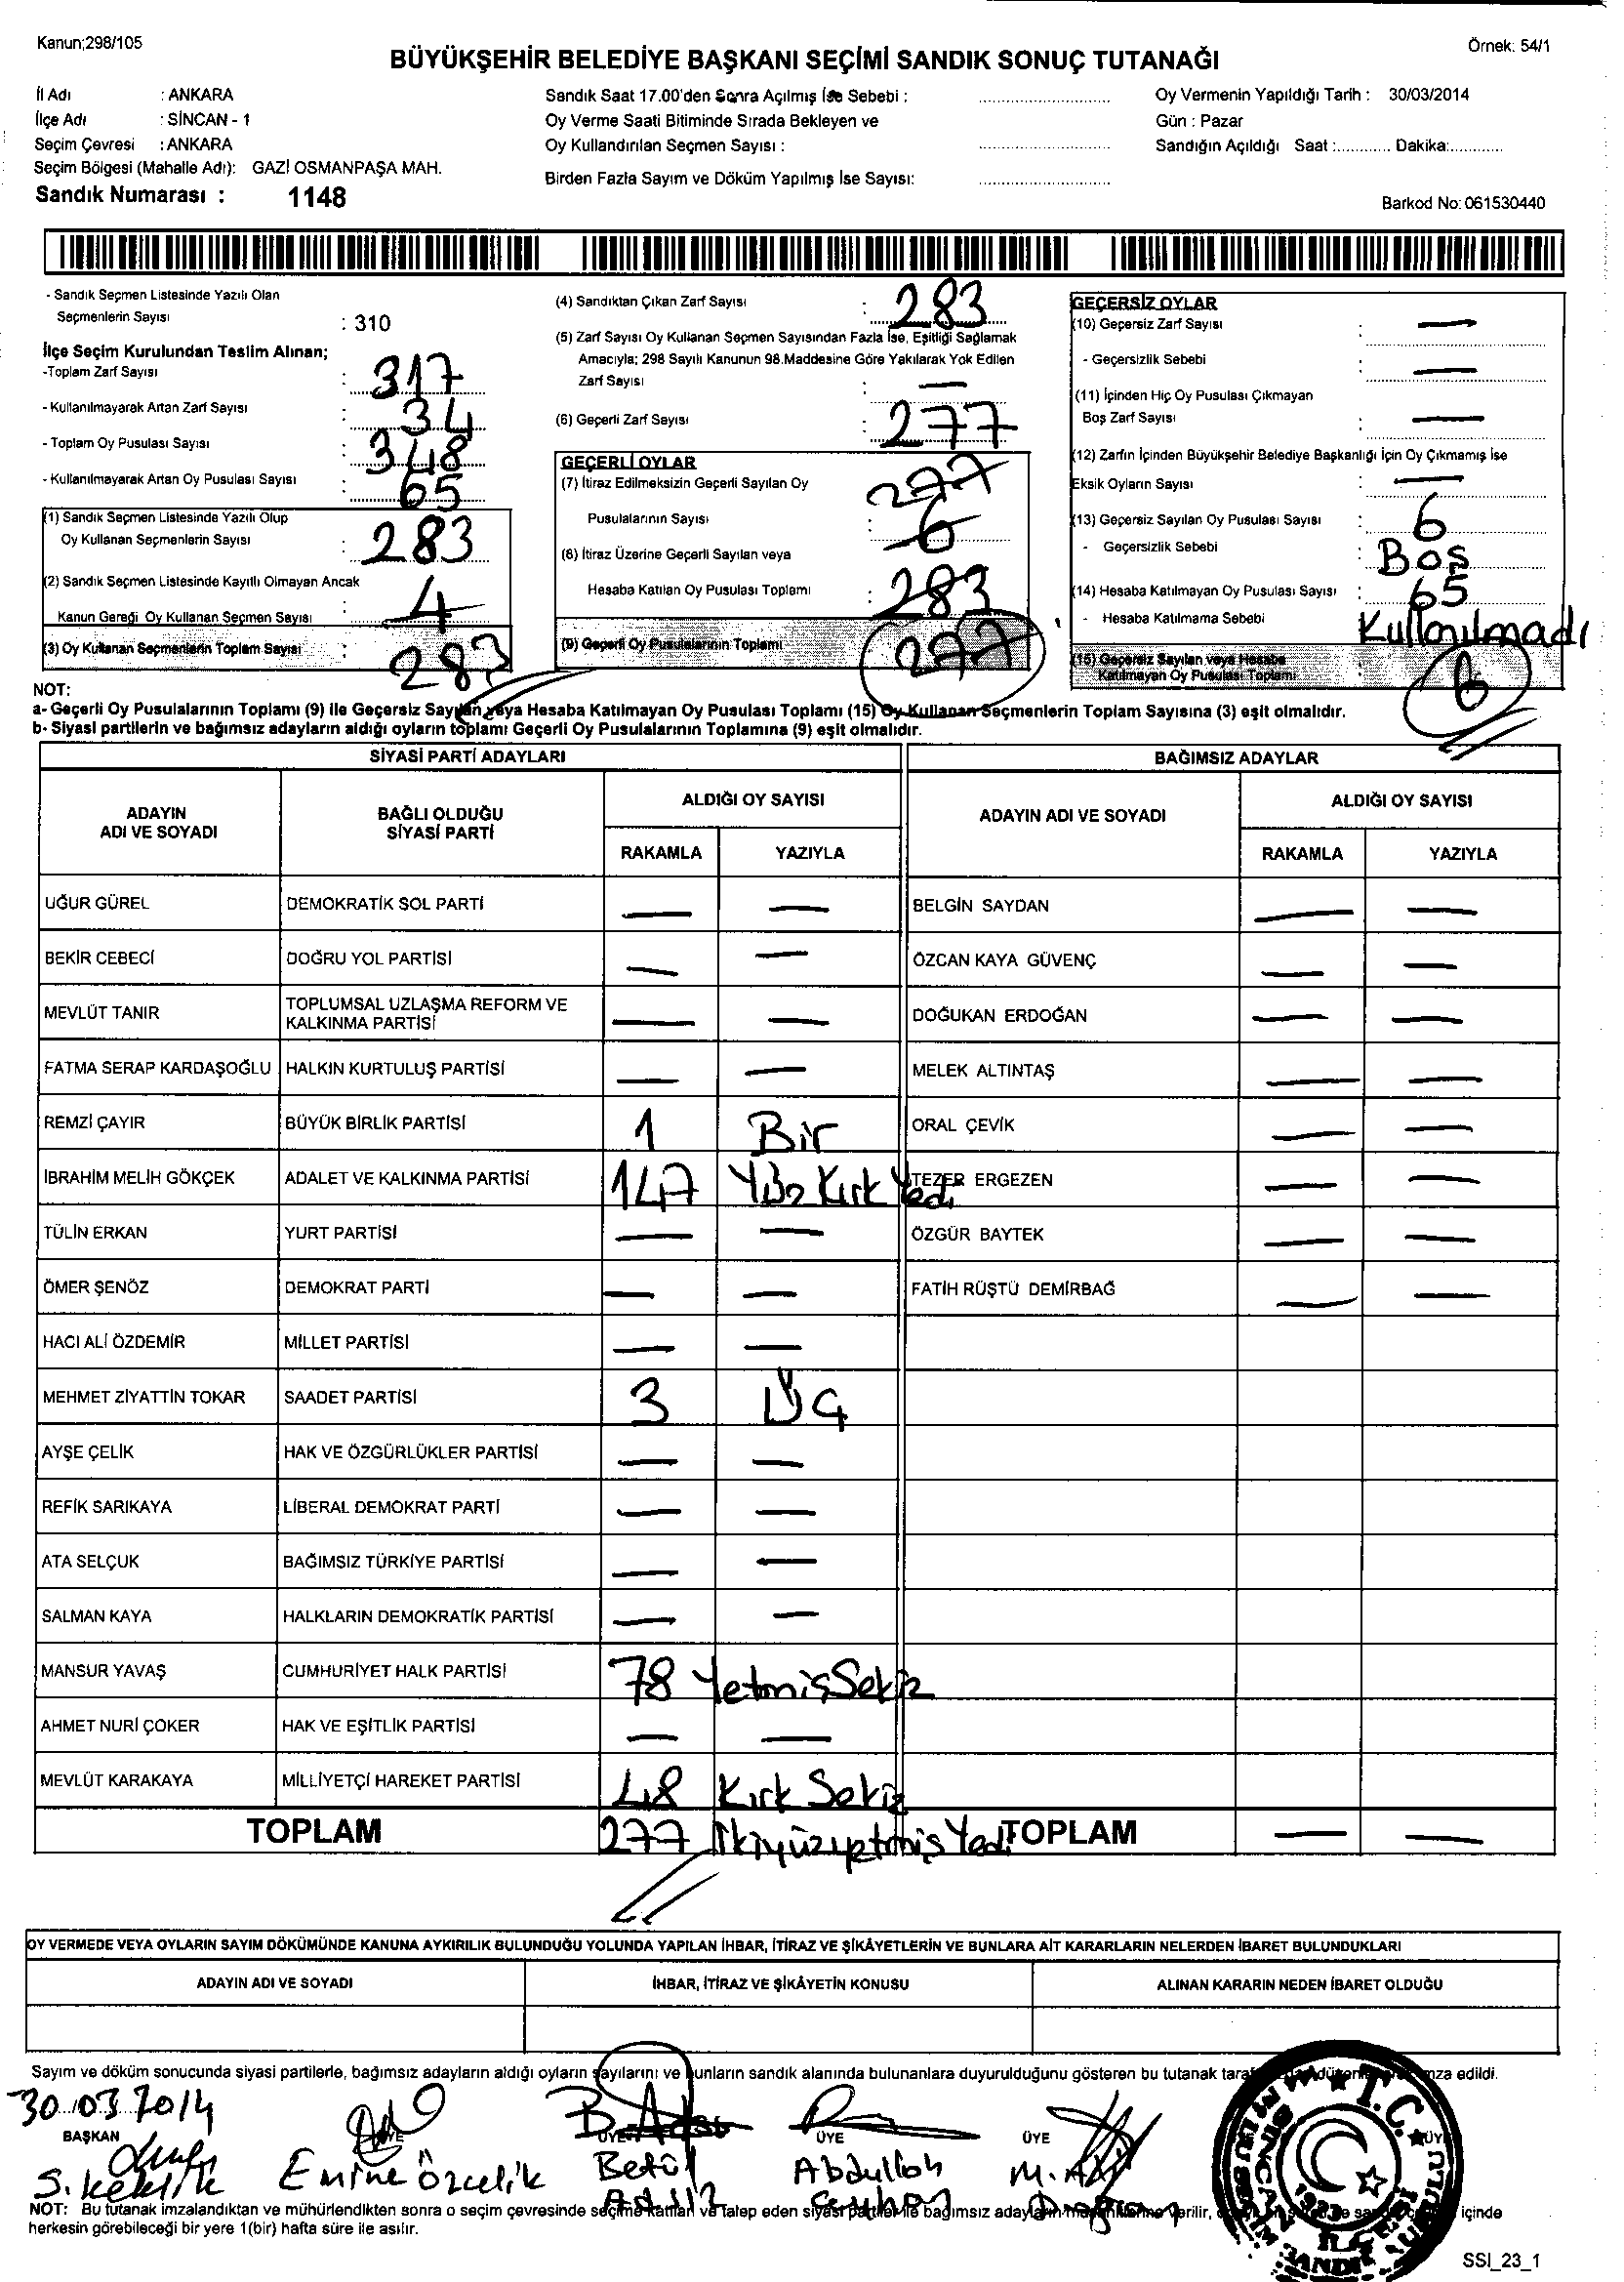 Kanun;298/105
Örnek: 54/1
BÜYÜKŞEHİR BELEDİYE BAŞKANI SEÇİMİ SANDIK SONUÇ TUTANAĞI
İl Adı : ANKARA
İlçe Adı : SİNCAN - 1
Seçim Çevresi : ANKARA
Seçim Bölgesi (Mahalle Adı): GAZİ OSMANPAŞA MAH.
Sandık Numarası : 1148
Sandık Saat 17.00'den Sonra Açılmış İse Sebebi :
Oy Verme Saati Bitiminde Sırada Bekleyen ve
Oy Kullandırılan Seçmen Sayısı :
Birden Fazla Sayım ve Döküm Yapılmış İse Sayısı:
Oy Vermenin Yapıldığı Tarih : 30/03/2014
Gün : Pazar
Sandığın Açıldığı Saat :............ Dakika:............
Barkod No: 061530440
- Sandık Seçmen Listesinde Yazılı Olan
Seçmenlerin Sayısı : 310
İlçe Seçim Kurulundan Teslim Alınan;
-Toplam Zarf Sayısı : 317
- Kullanılmayarak Artan Zarf Sayısı : 34
- Toplam Oy Pusulası Sayısı : 348
- Kullanılmayarak Artan Oy Pusulası Sayısı : 65
(1) Sandık Seçmen Listesinde Yazılı Olup
Oy Kullanan Seçmenlerin Sayısı : 283
(2) Sandık Seçmen Listesinde Kayıtlı Olmayan Ancak
Kanun Gereği Oy Kullanan Seçmen Sayısı : 4
(3) Oy Kullanan Seçmenlerin Toplam Sayısı : 283
(4) Sandıktan Çıkan Zarf Sayısı : 283
(5) Zarf Sayısı Oy Kullanan Seçmen Sayısından Fazla İse, Eşitliği Sağlamak
Amacıyla; 298 Sayılı Kanunun 98.Maddesine Göre Yakılarak Yok Edilen
Zarf Sayısı : —
(6) Geçerli Zarf Sayısı : 277
GEÇERLİ OYLAR
(7) İtiraz Edilmeksizin Geçerli Sayılan Oy 277
Pusulalarının Sayısı : 6
(8) İtiraz Üzerine Geçerli Sayılan veya
Hesaba Katılan Oy Pusulası Toplamı : 283
(9) Geçerli Oy Pusulalarının Toplamı 277
GEÇERSİZ OYLAR
(10) Geçersiz Zarf Sayısı : —
- Geçersizlik Sebebi : —
(11) İçinden Hiç Oy Pusulası Çıkmayan
Boş Zarf Sayısı : —
(12) Zarfın İçinden Büyükşehir Belediye Başkanlığı İçin Oy Çıkmamış İse
Eksik Oyların Sayısı : —
(13) Geçersiz Sayılan Oy Pusulası Sayısı : 6
- Geçersizlik Sebebi : Boş
(14) Hesaba Katılmayan Oy Pusulası Sayısı : 65
- Hesaba Katılmama Sebebi Kullanılmadı
(15) Geçersiz Sayılan veya Hesaba
Katılmayan Oy Pusulası Toplamı 6
NOT:
a- Geçerli Oy Pusulalarının Toplamı (9) ile Geçersiz Sayılan veya Hesaba Katılmayan Oy Pusulası Toplamı (15) Oy Kullanan Seçmenlerin Toplam Sayısına (3) eşit olmalıdır.
b- Siyasi partilerin ve bağımsız adayların aldığı oyların toplamı Geçerli Oy Pusulalarının Toplamına (9) eşit olmalıdır.
SİYASİ PARTİ ADAYLARI BAĞIMSIZ ADAYLAR
ADAYIN ADI VE SOYADI BAĞLI OLDUĞU SİYASİ PARTİ ALDIĞI OY SAYISI ADAYIN ADI VE SOYADI ALDIĞI OY SAYISI
RAKAMLA YAZIYLA RAKAMLA YAZIYLA
UĞUR GÜREL DEMOKRATİK SOL PARTİ — — BELGİN SAYDAN — —
BEKİR CEBECİ DOĞRU YOL PARTİSİ — — ÖZCAN KAYA GÜVENÇ — —
MEVLÜT TANIR TOPLUMSAL UZLAŞMA REFORM VE KALKINMA PARTİSİ — — DOĞUKAN ERDOĞAN — —
FATMA SERAP KARDAŞOĞLU HALKIN KURTULUŞ PARTİSİ — — MELEK ALTINTAŞ — —
REMZİ ÇAYIR BÜYÜK BİRLİK PARTİSİ 1 Bir ORAL ÇEVİK — —
İBRAHİM MELİH GÖKÇEK ADALET VE KALKINMA PARTİSİ 147 Yüz Kırk Yedi TEZER ERGEZEN — —
TÜLİN ERKAN YURT PARTİSİ — — ÖZGÜR BAYTEK — —
ÖMER ŞENÖZ DEMOKRAT PARTİ — — FATİH RÜŞTÜ DEMİRBAĞ — —
HACI ALİ ÖZDEMİR MİLLET PARTİSİ — —
MEHMET ZİYATTİN TOKAR SAADET PARTİSİ 3 Üç
AYŞE ÇELİK HAK VE ÖZGÜRLÜKLER PARTİSİ — —
REFİK SARIKAYA LİBERAL DEMOKRAT PARTİ — —
ATA SELÇUK BAĞIMSIZ TÜRKİYE PARTİSİ — —
SALMAN KAYA HALKLARIN DEMOKRATİK PARTİSİ — —
MANSUR YAVAŞ CUMHURİYET HALK PARTİSİ 78 Yetmiş Sekiz
AHMET NURİ ÇOKER HAK VE EŞİTLİK PARTİSİ — —
MEVLÜT KARAKAYA MİLLİYETÇİ HAREKET PARTİSİ 48 Kırk Sekiz
TOPLAM 277 İkiyüzyetmiş Yedi TOPLAM — —
OY VERMEDE VEYA OYLARIN SAYIM DÖKÜMÜNDE KANUNA AYKIRILIK BULUNDUĞU YOLUNDA YAPILAN İHBAR, İTİRAZ VE ŞİKÂYETLERİN VE BUNLARA AİT KARARLARIN NELERDEN İBARET BULUNDUKLARI
ADAYIN ADI VE SOYADI İHBAR, İTİRAZ VE ŞİKÂYETİN KONUSU ALINAN KARARIN NEDEN İBARET OLDUĞU
Sayım ve döküm sonucunda siyasi partilerle, bağımsız adayların aldığı oyların sayılarını ve bunların sandık alanında bulunanlara duyurulduğunu gösteren bu tutanak imza edildi.
30.03.2014
BAŞKAN ÜYE ÜYE ÜYE ÜYE
S. Keklik Emine Özçelik Betül Abdullah M. Doğan
Ceyhan
NOT: Bu tutanak imzalandıktan ve mühürlendikten sonra o seçim çevresinde seçime katılan ve talep eden siyasi partiler ile bağımsız adayların verilir, içinde
herkesin görebileceği bir yere 1(bir) hafta süre ile asılır.
T.C.
SİNCAN
SSI_23_1